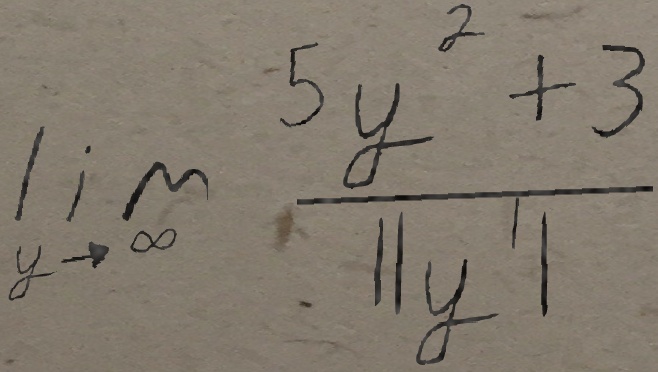 \lim_{y \to \infty} \frac{5y^2+3}{1|y^1|}